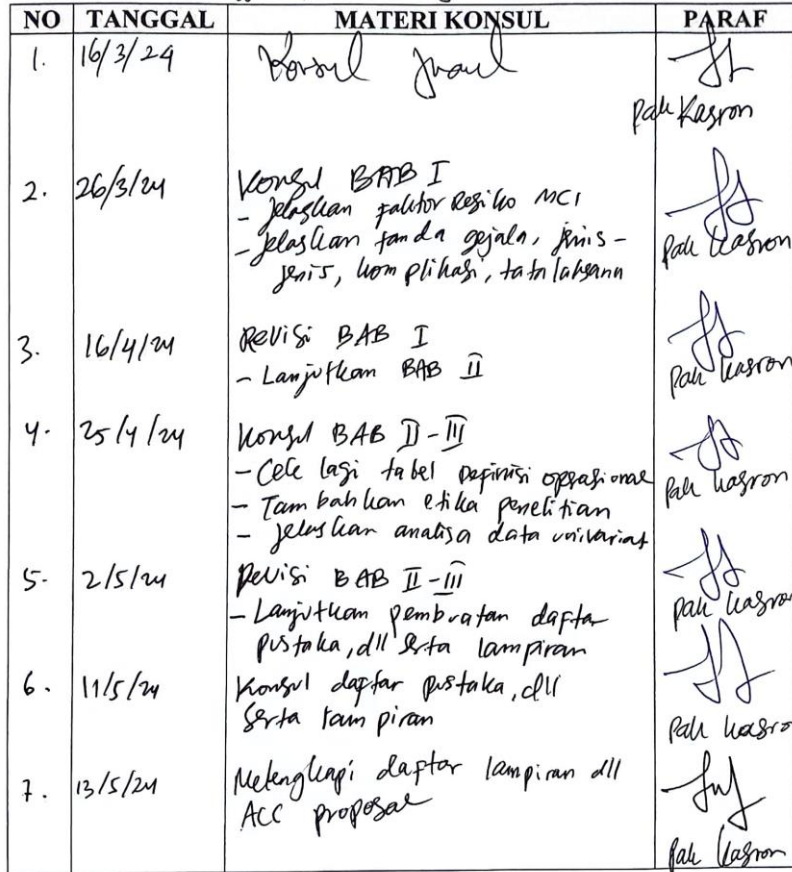 NO TANGGAL MATERI KONSUL PARAF
1. 16/3/24 Konsul Judul
Pak Kasron
2. 26/3/24 Konsul BAB I
- Jelaskan faktor Resiko MCI
- Jelaskan tanda gejala, jenis-
jenis, komplikasi, tatalaksana
Pak Kasron
3. 16/4/24 Revisi BAB I
- Lanjutkan BAB II
Pak Kasron
4. 25/4/24 Konsul BAB II-III
- Cek lagi tabel Definisi operasional
- Tambahkan etika penelitian
- Jelaskan analisa data univariat
Pak Kasron
5. 2/5/24 Revisi BAB II-III
- Lanjutkan pembuatan daftar
pustaka, dll serta lampiran
Pak Kasron
6. 11/5/24 Konsul daftar pustaka, dll
serta lampiran
Pak Kasron
7. 13/5/24 Melengkapi daftar lampiran dll
ACC proposal
Pak Kasron